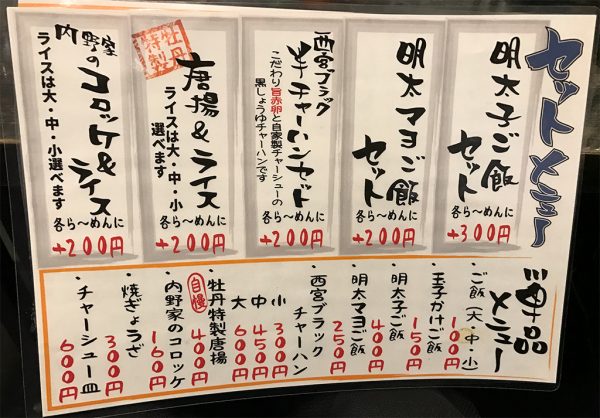 セットメニュー
明太子ご飯
セット
各ら〜めんに
+300円
明太マヨご飯
セット
各ら〜めんに
+200円
西宮ブラック
半チャーハンセット
こだわり旨赤卵と自家製チャーシューの
黒しょうゆチャーハンです
各ら〜めんに
+200円
牡丹
特製
唐揚&ライス
ライスは大・中・小
選べます
各ら〜めんに
+200円
内野家
のコロッケ&ライス
ライスは大・中・小選べます
各ら〜めんに
+200円
単品
メニュー
ご飯(大・中・小)
100円
玉子かけご飯
150円
明太子ご飯
400円
明太マヨご飯
250円
西宮ブラック
チャーハン
小 300円
中 450円
大 600円
牡丹特製唐揚
自慢 400円
内野家のコロッケ
160円
焼ぎょうざ
300円
チャーシュー皿
600円